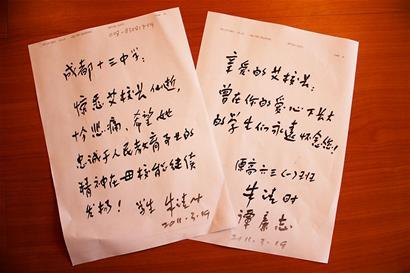 成都十三中学:
惊悉艾校长仙逝,
十分悲痛、希望她
忠诚于人民教育事业的
精神在母校能继续
发扬! 学生 朱清时
2011.3.19
亲爱的艾校长:
曾在你的爱心下长大
的学生们永远怀念您!
原高六三(一)班
朱清时
谭秦志
2011.3.19